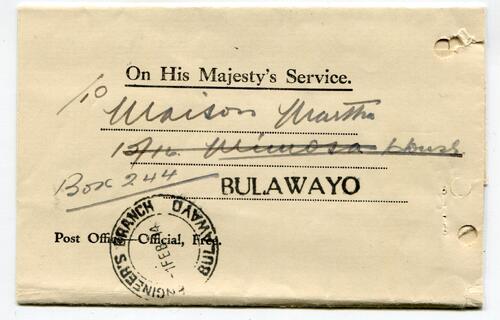 On His Majesty's Service.
To
Maison Martha
15/16 Mimosa House
Box 244
BULAWAYO
Post Office—Official, Free.
ENGINEER'S BRANCH BULAWAYO
-1 FEB